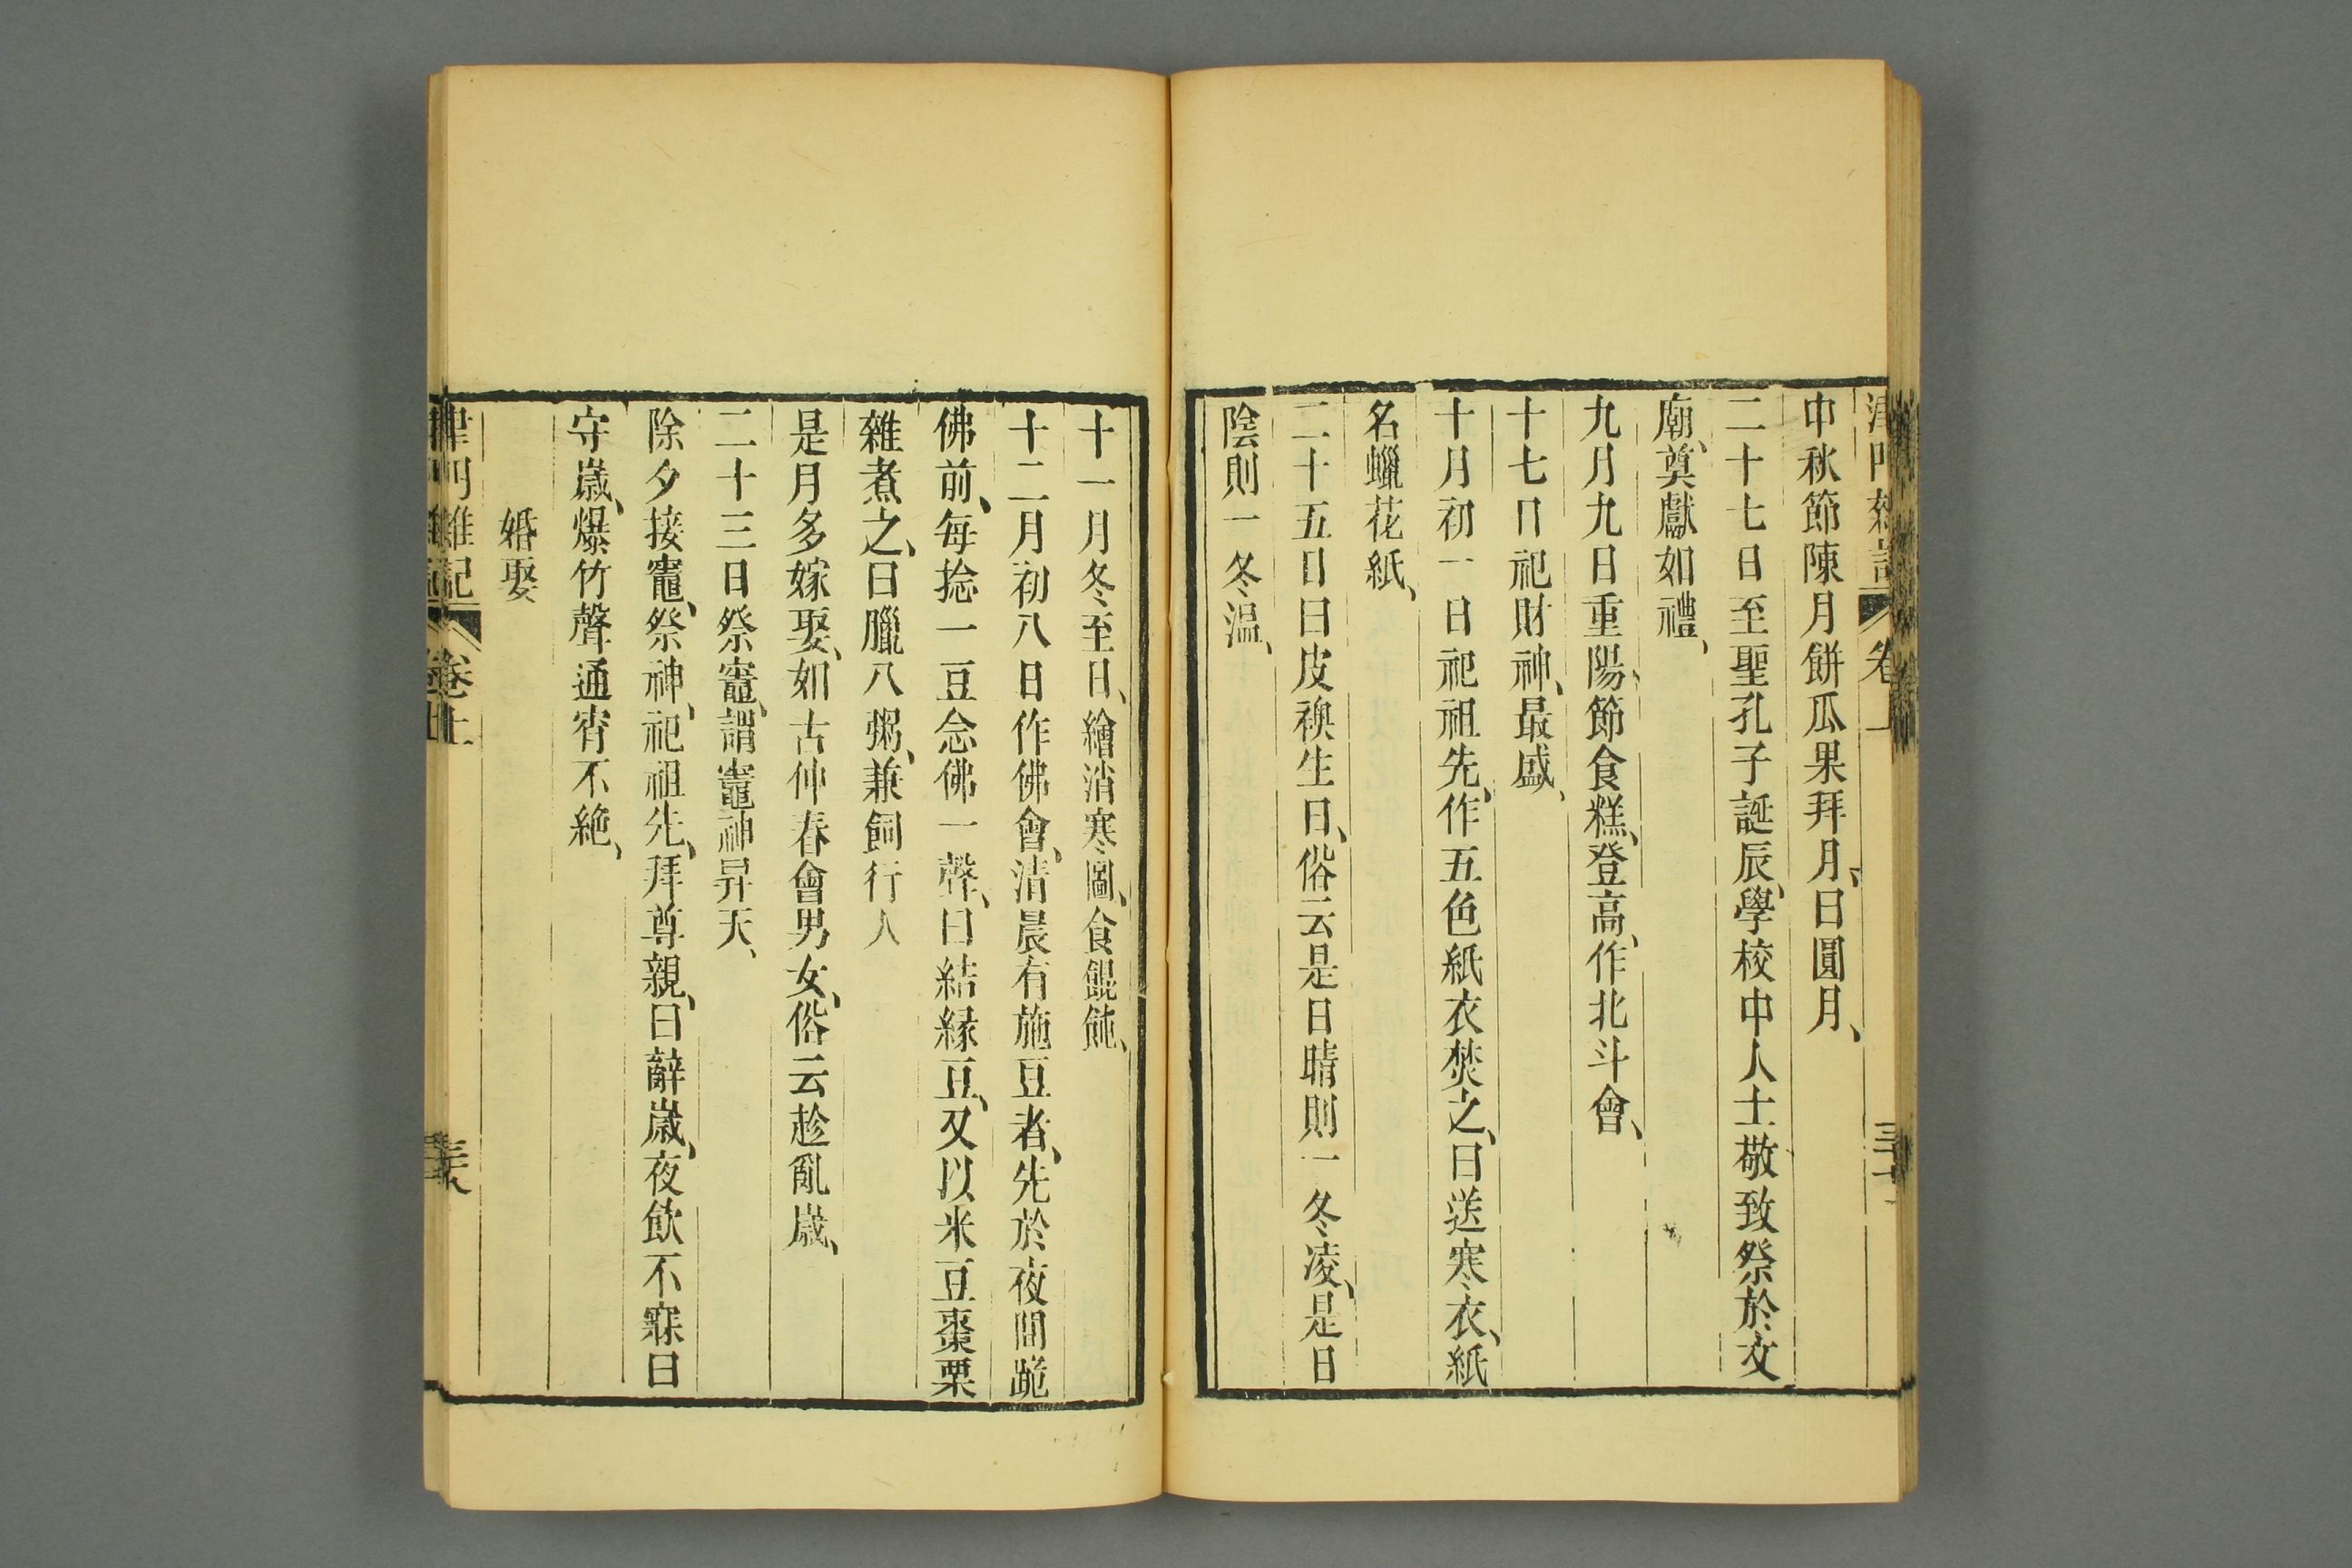 津門雜記 卷上 三十七
中秋節陳月餅瓜果拜月、曰圓月、
二十七日至聖孔子誕辰、學校中人士敬致祭於文
廟、奠獻如禮、
九月九日重陽節食糕、登高、作北斗會、
十七日祀財神、最盛、
十月初一日祀祖先、作五色紙衣焚之、曰送寒衣、紙
名蠟花紙、
二十五日曰皮襖生日、俗云是日晴則一冬凌、是日
陰則一冬溫、
十一月冬至日、繪消寒圖、食餛飩、
十二月初八日作佛會、清晨有施豆者、先於夜間跪
佛前、每捻一豆念佛一聲、曰結緣豆、又以米豆棗栗
雜煮之、曰臘八粥、兼飼行人
是月多嫁娶、如古仲春會男女、俗云趁亂歲、
二十三日祭竈、謂竈神昇天、
除夕接竈、祭神、祀祖先、拜尊親、曰辭歲、夜飲不寐曰
守歲、爆竹聲通宵不絶、
婚娶
津門雜記 卷上 三十八